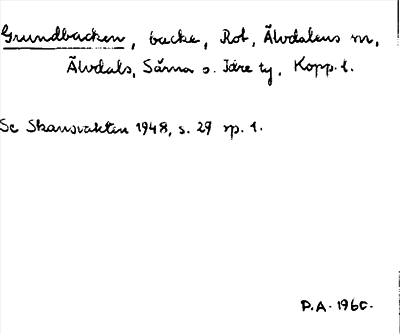 Grundbacken, backe, Rot, Älvdalens m,
Älvdals, Särna o. Idre tg, Kopp. l.
Se Skansvakten 1948, s. 29 sp. 1.
P.A. 1960.